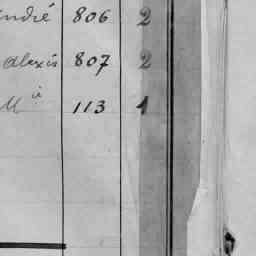 André 806 2
Alexis 807 2
M ie 113 1